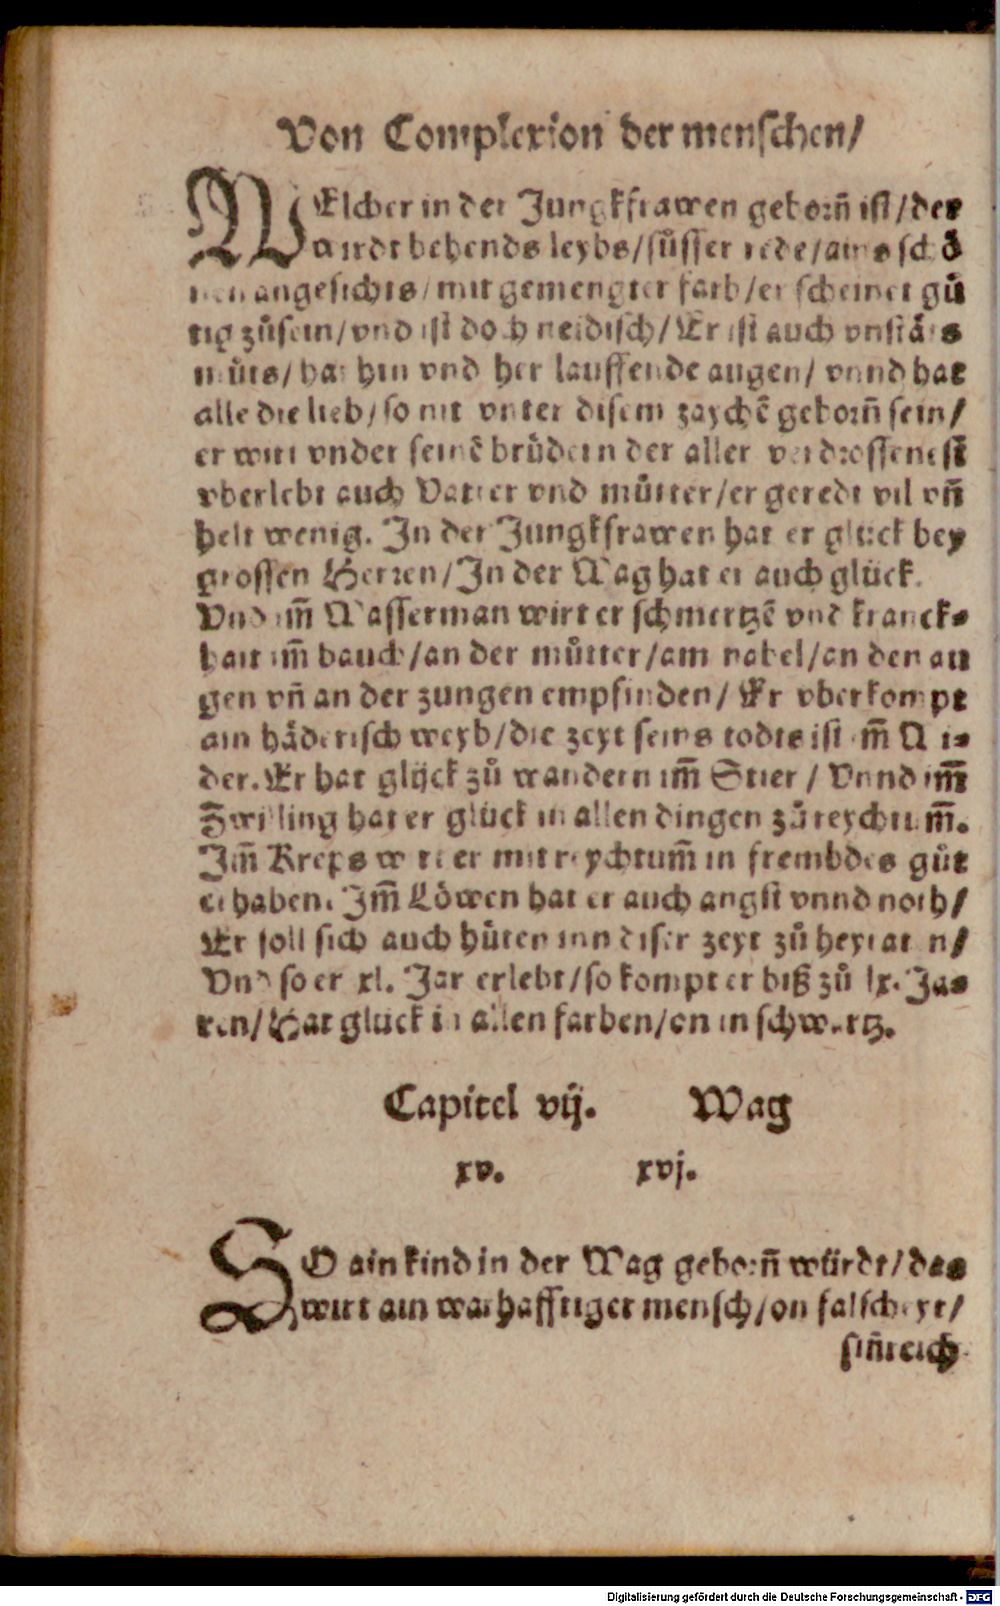 Von Complexion der menschen/
WElcher in der Jungkfrawen geborñ ist/der
wirdt behends leybs/süsser rede/ains schö
nen angesichts/mit gemengter farb/er scheinet gů
tig zůsein/vnd ist doch neidisch/Er ist auch vnstäts
můts/hat hin vnd her lauffende augen/ vnnd hat
alle die lieb/so mit vnter disem zaychē geborñ sein/
er wirt vnder seinē brůdern der aller verdrossenest
vberlebt auch Vatter vnd můtter/er geredt vil vñ
helt wenig. In der Jungkfrawen hat er glück bey
grossen Herren/In der Wag hat er auch glück.
Vnd im̄ Wasserman wirt er schmertzē vnd kranck-
hait im̄ bauch/an der můtter/am nabel/an den au
gen vñ an der zungen empfinden/ Er vberkompt
ain häderisch weyb/die zeyt seins todts ist im̄ Wi-
der. Er hat glück zů wandern im̄ Stier / Vnnd im̄
Zwilling hat er glück in allen dingen zů reychtum̄.
Im̄ Kreps wirt er mit reychtum̄ in frembdes gůt
erhaben. Im̄ Löwen hat er auch angst vnnd noth/
Er soll sich auch hüten inn diser zeyt zů heyraten/
Vnd so er xl. Jar erlebt/so kompt er biß zů lx. Ja-
ren/Hat glück in allen farben/on in schwartz.
Capitel vij. Wag
xv. xvj.
SO ain kind in der Wag geborñ würdt/das
wirt ain warhafftiger mensch/on falscheyt/
siñreich
Digitalisierung gefördert durch die Deutsche Forschungsgemeinschaft - DFG